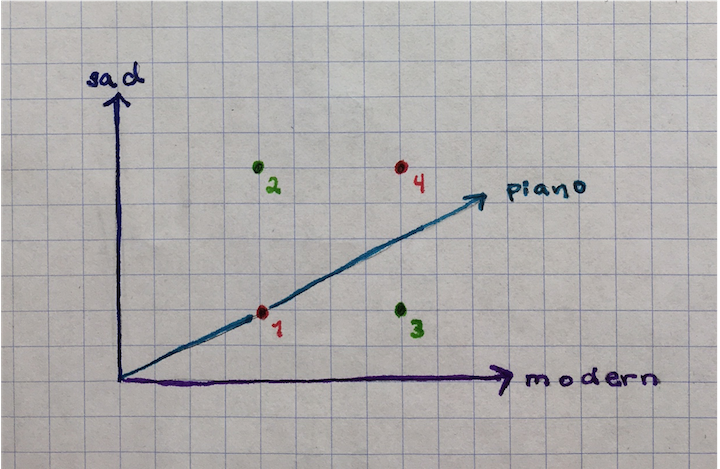 sad
2
4
piano
1
3
modern